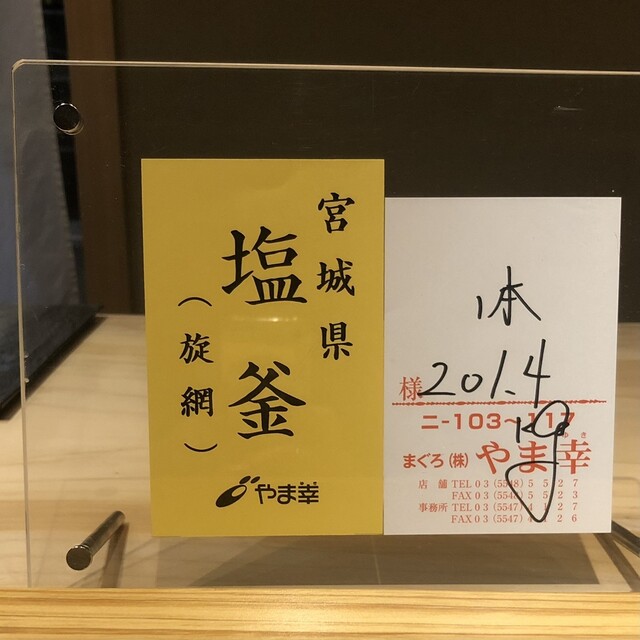 宮城県
塩釜
(旋網)
やま幸
1本
様 201.4
kg
ニ-103~117
ゆき
まぐろ(株)やま幸
店舗 TEL 03(5548)5527
FAX 03(5548)5523
事務所 TEL 03(5547)4127
FAX 03(5547)4126